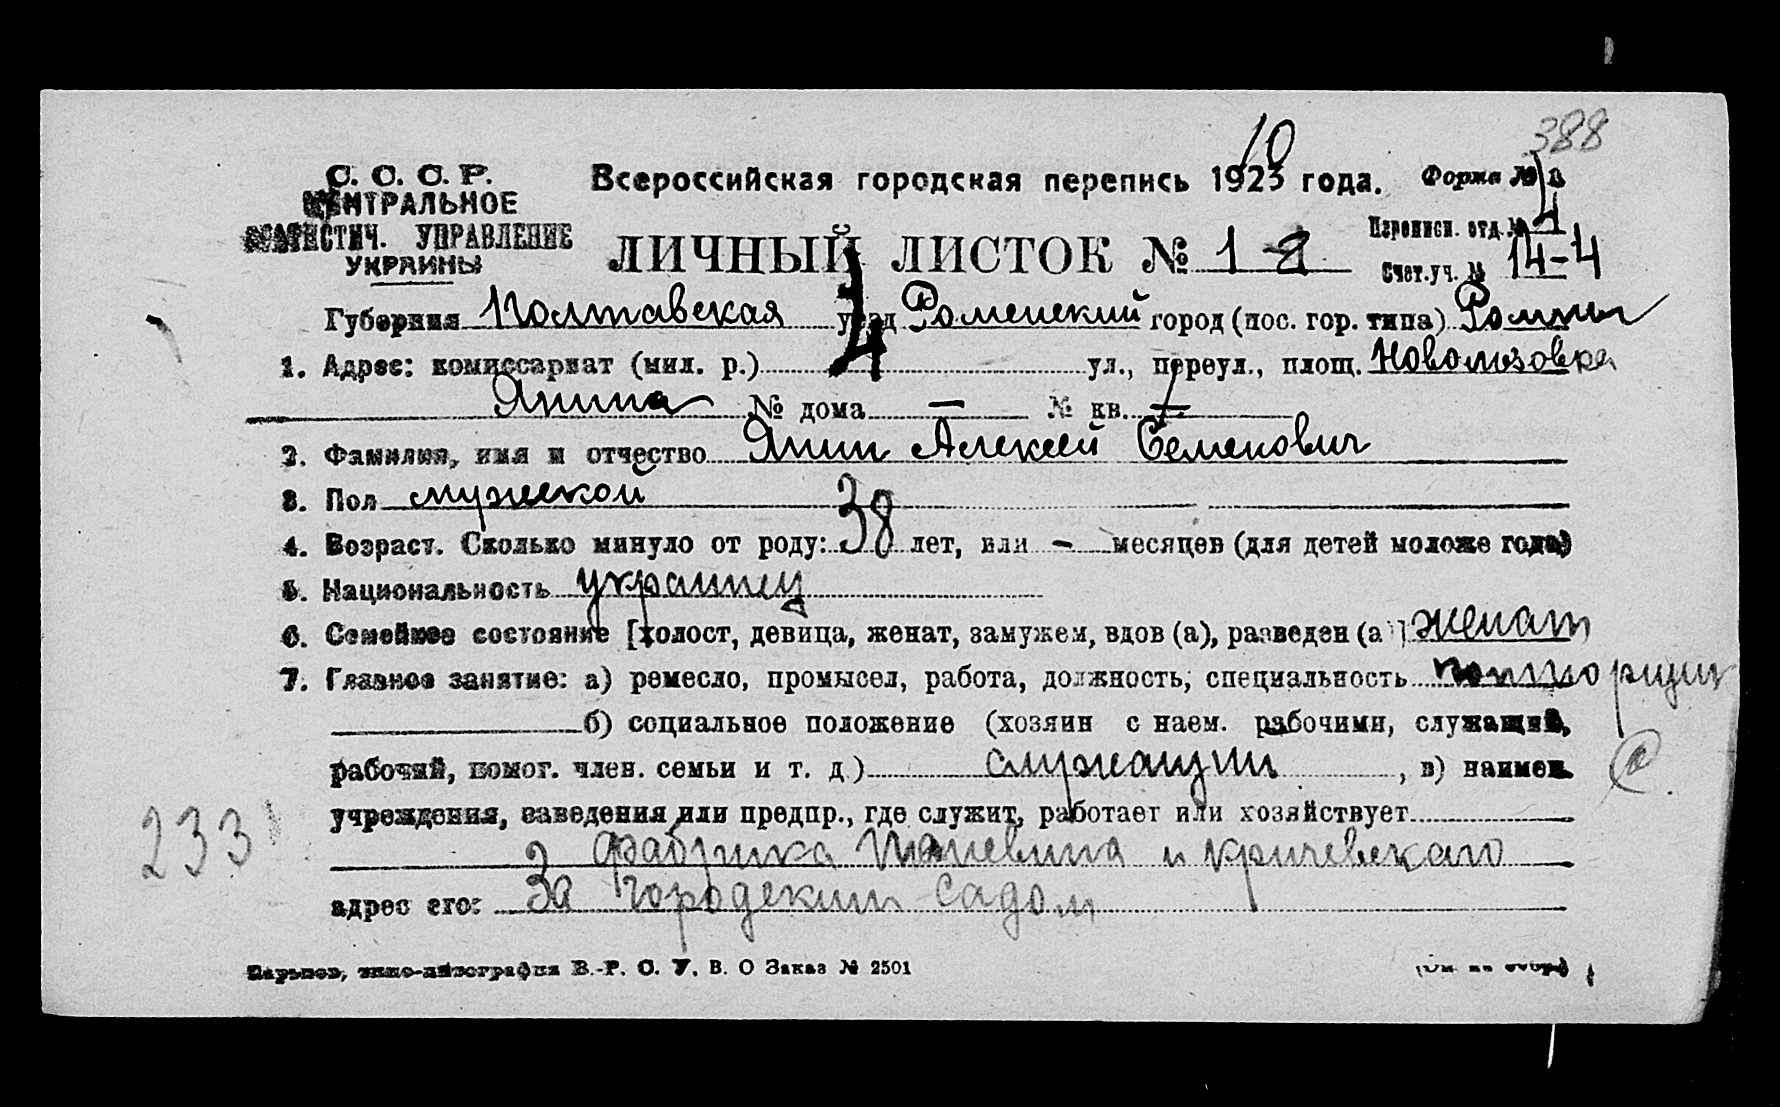 388
10
С. С. С. Р.
ЦЕНТРАЛЬНОЕ
СТАТИСТИЧ. УПРАВЛЕНИЕ
УКРАИНЫ
Всероссийская городская перепись 1923 года.
Форма №
Переписн. отд. №
ЛИЧНЫЙ ЛИСТОК № 1
Счет.уч. № 14-4
Губерния Полтавская уезд Роменский город (пос. гор. типа) Ромны
1. Адрес: комиссариат (мил. р.) 4 ул., переул., площ.
Янина № дома — № кв. —
2. Фамилия, имя и отчество Янин Алексей Семенович
3. Пол мужской
4. Возраст. Сколько минуло от роду: 38 лет, или - месяцев (для детей моложе года)
5. Национальность украинец
6. Семейное состояние [холост, девица, женат, замужем, вдов (а), разведен (а)] женат
7. Главное занятие: а) ремесло, промысел, работа, должность, специальность конторщик
б) социальное положение (хозяин с наем. рабочими, служащий,
рабочий, помог. член. семьи и т. д.) служащий, в) наимен.
учреждения, заведения или предпр., где служит, работает или хозяйствует
фабрика и Кричевского
адрес его: За городским садом
233
Харьков, типо-литография В.-Р. С. У. В. О Заказ № 2501